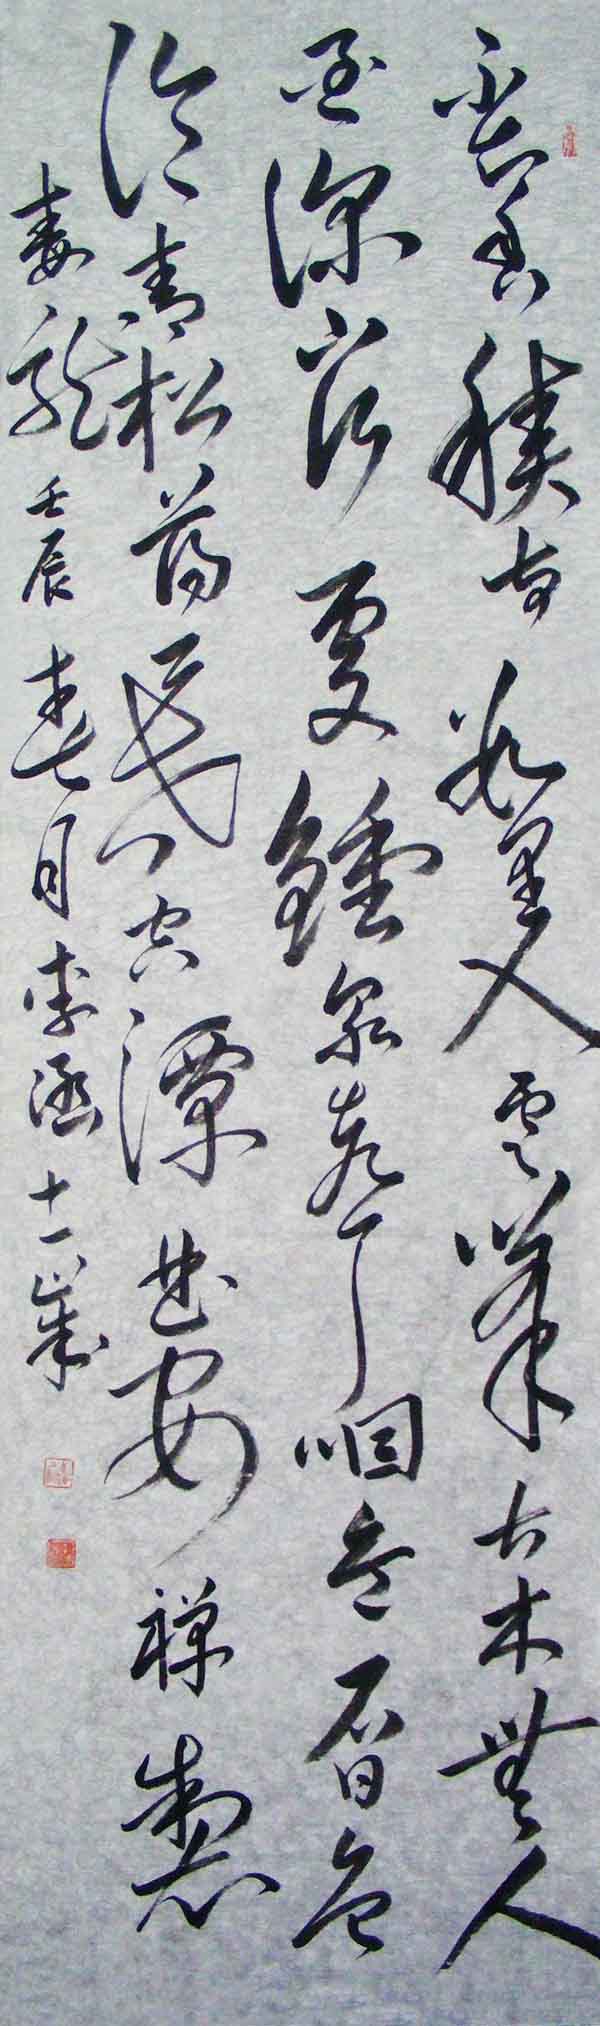 不知香積寺數里入雲峯古木無人
徑深山何處鍾泉聲咽危石日色
冷青松薄暮空潭曲安禅製
毒龍壬辰春七月李涵十一歲